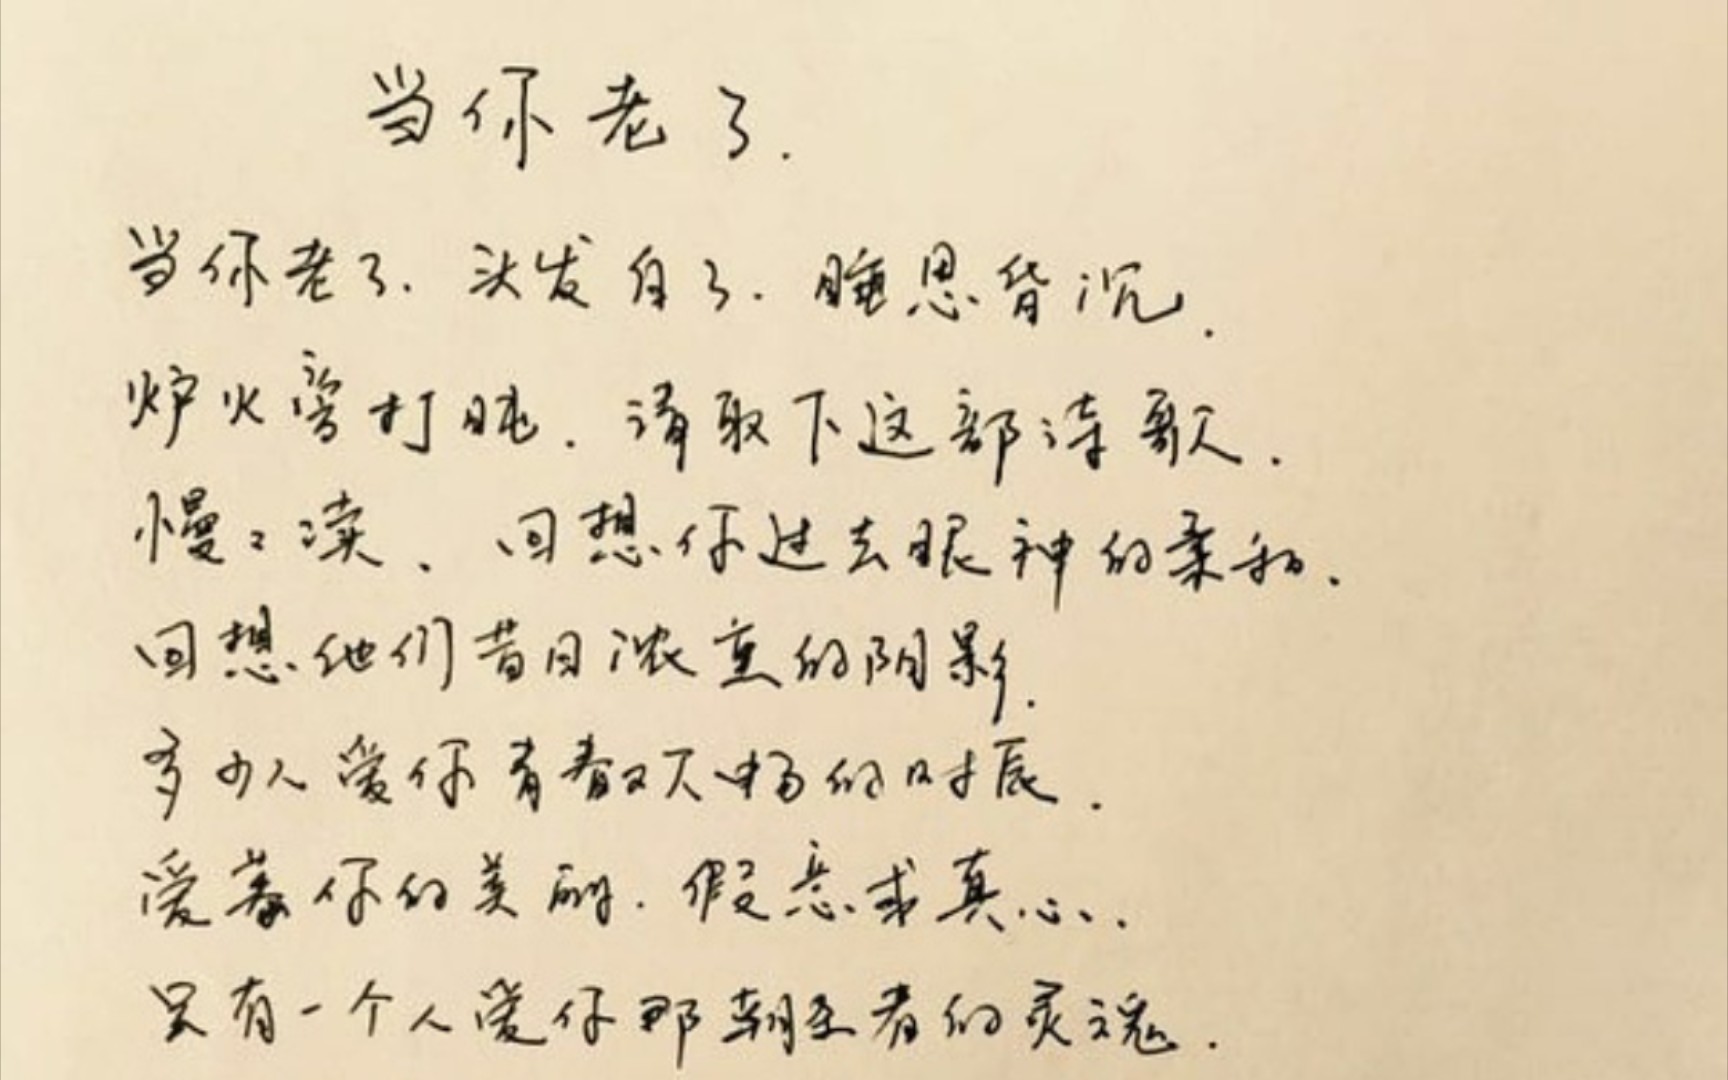 当你老了.
当你老了.头发白了.睡思昏沉.
炉火旁打盹.请取下这部诗歌.
慢々读.回想你过去眼神的柔和.
回想他们昔日浓重的阴影.
多少人爱你青春欢畅的时辰.
爱慕你的美丽.假意或真心.
只有一个人爱你那朝圣者的灵魂.